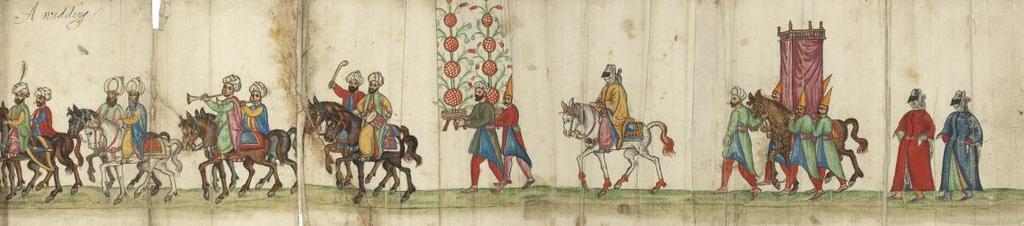 A wedding